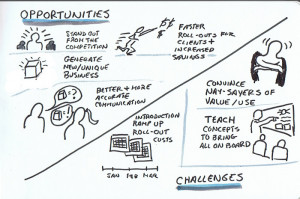 OPPORTUNITIES
STAND OUT
FROM THE
COMPETITION
GENERATE
NEW/UNIQUE
BUSINESS
BETTER + MORE
ACCURATE
COMMUNICATION
FASTER
ROLL-OUTS FOR
CLIENTS +
INCREASED
SAVINGS
INTRODUCTION
RAMP UP
ROLL-OUT
COSTS
JAN FEB MAR
CONVINCE
NAY-SAYERS OF
VALUE/USE
TEACH
CONCEPTS
TO BRING
ALL ON BOARD
CHALLENGES